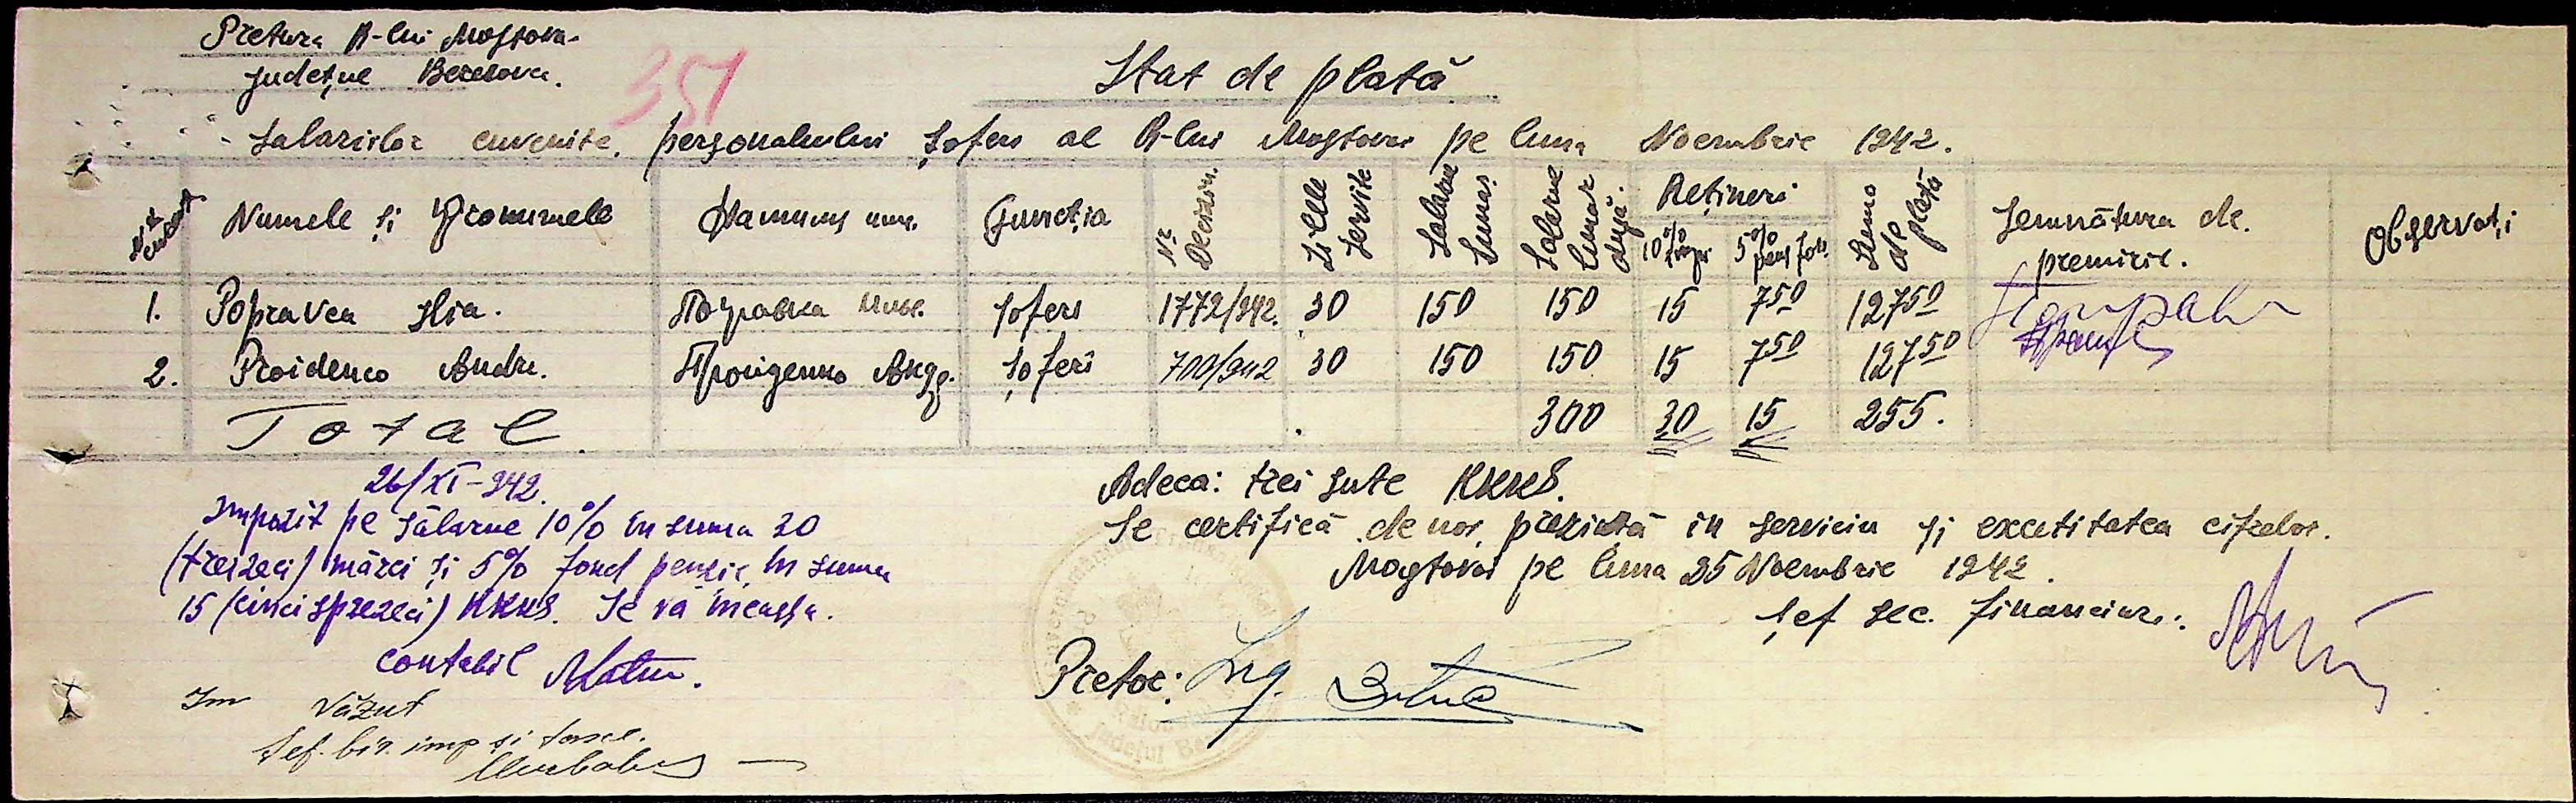 Pretura R-lui Mostovoi
Județul Berezovca.
351
Stat de plată
Salariilor cuvenite personalului șoferi al R-lui Mostovoi pe luna Noembrie 1942.
Nr. curent
Numele și Pronumele
Funcția
Nr. Deciziei.
Zilele servite
Salariu lunar
Salariu lunar după
Rețineri
10% imp.
5% pens. fon.
Suma de plată
Semnătura de
primire.
Observații
1. Popravca Ilia. Поправка Илья. șoferi 1772/942. 30 150 150 15 7⁵⁰ 127⁵⁰
2. Proidenco Andri. Пройденко Андр. șoferi 700/942 30 150 150 15 7⁵⁰ 127⁵⁰
Total 300 30 15 255.
26/XI-942.
Impozit pe sălarue 10% în suma 30
(treizeci) mărci și 5% fond pensie, în suma
15 (cincisprezeci) RKKS. Se va încassa.
contabil
Văzut
Șef. bir. imp și taxe.
Adeca: trei sute RKKS.
Se certifică de noi, prezintă in serviciu și excetitatea cifrelor.
Mostovoi pe luna 25 Noembrie 1942.
Șef sec. financiare:
Pretor: Ing.
Județul